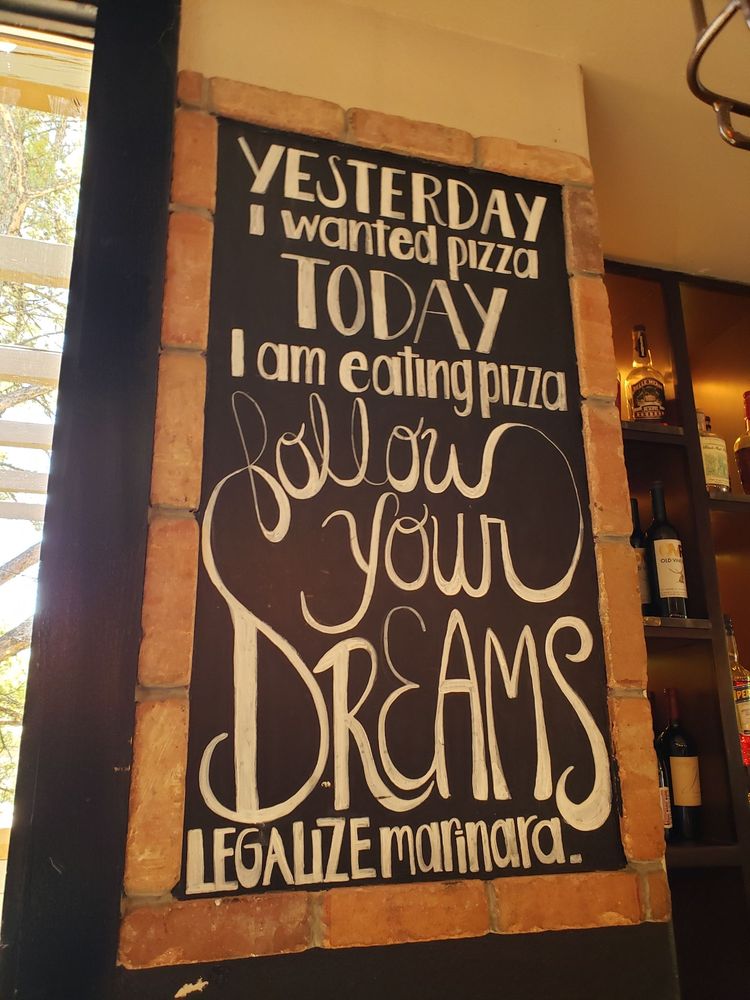 YESTERDAY
I wanted pizza
TODAY
I am eating pizza
follow
your
DREAMS
LEGALIZE marinara_
OLD VINE